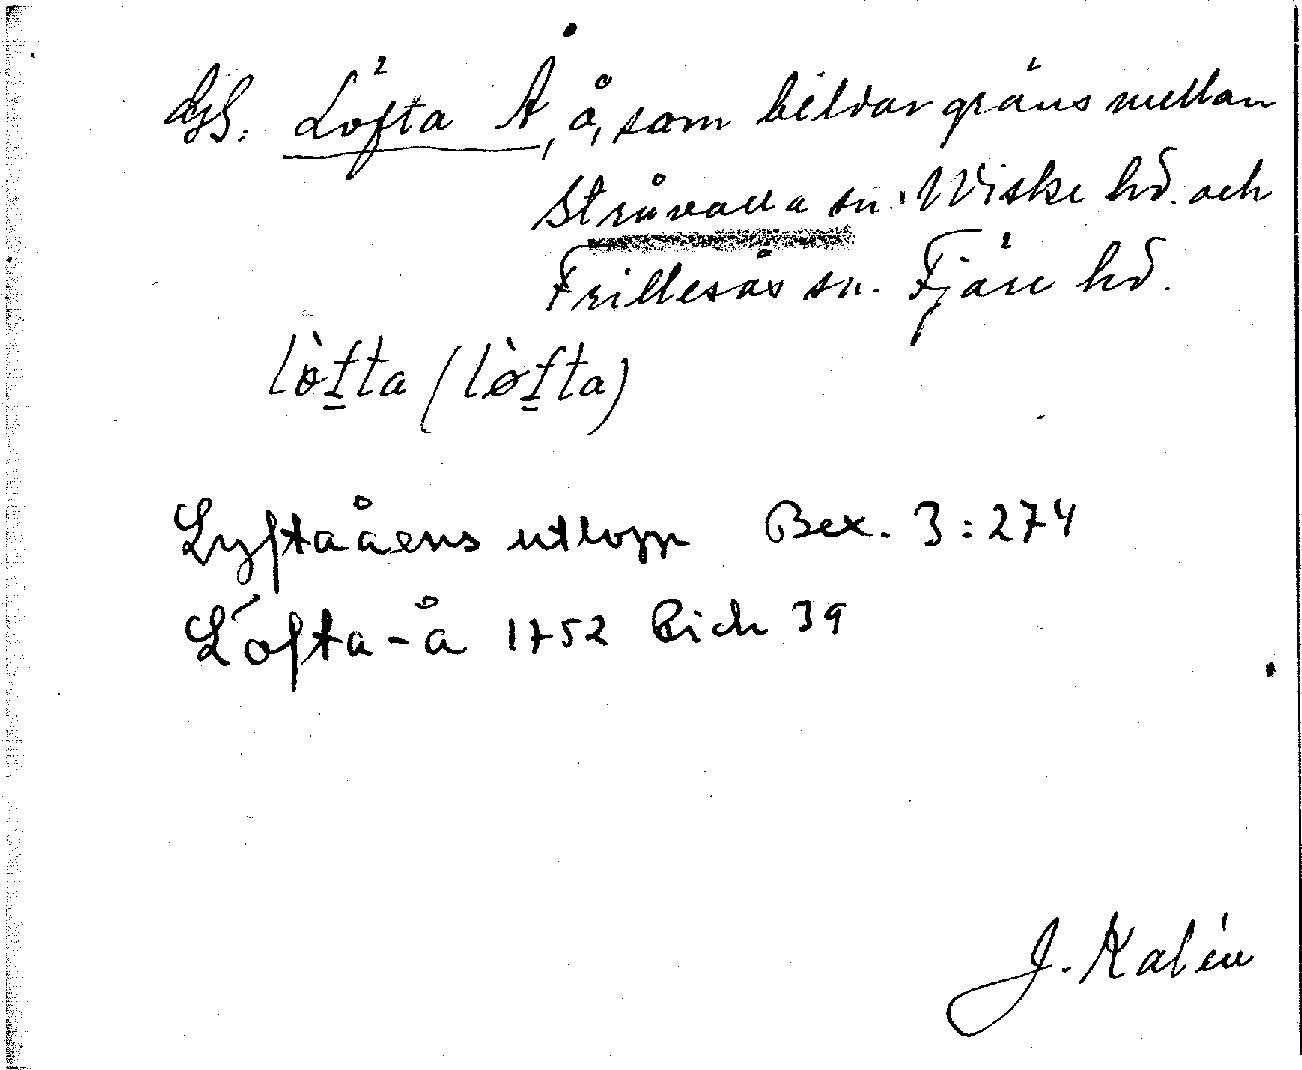 Löfta Å, å, som bildar gräns mellan
Stråvalla sn. Wiske hd. och
Frillesås sn. Fjäre hd.
lòfta (lø̀fta)
Lyftaåens utlopp Bex. 3:274
Löfta-å 1752 Rich 39
J. Kalén